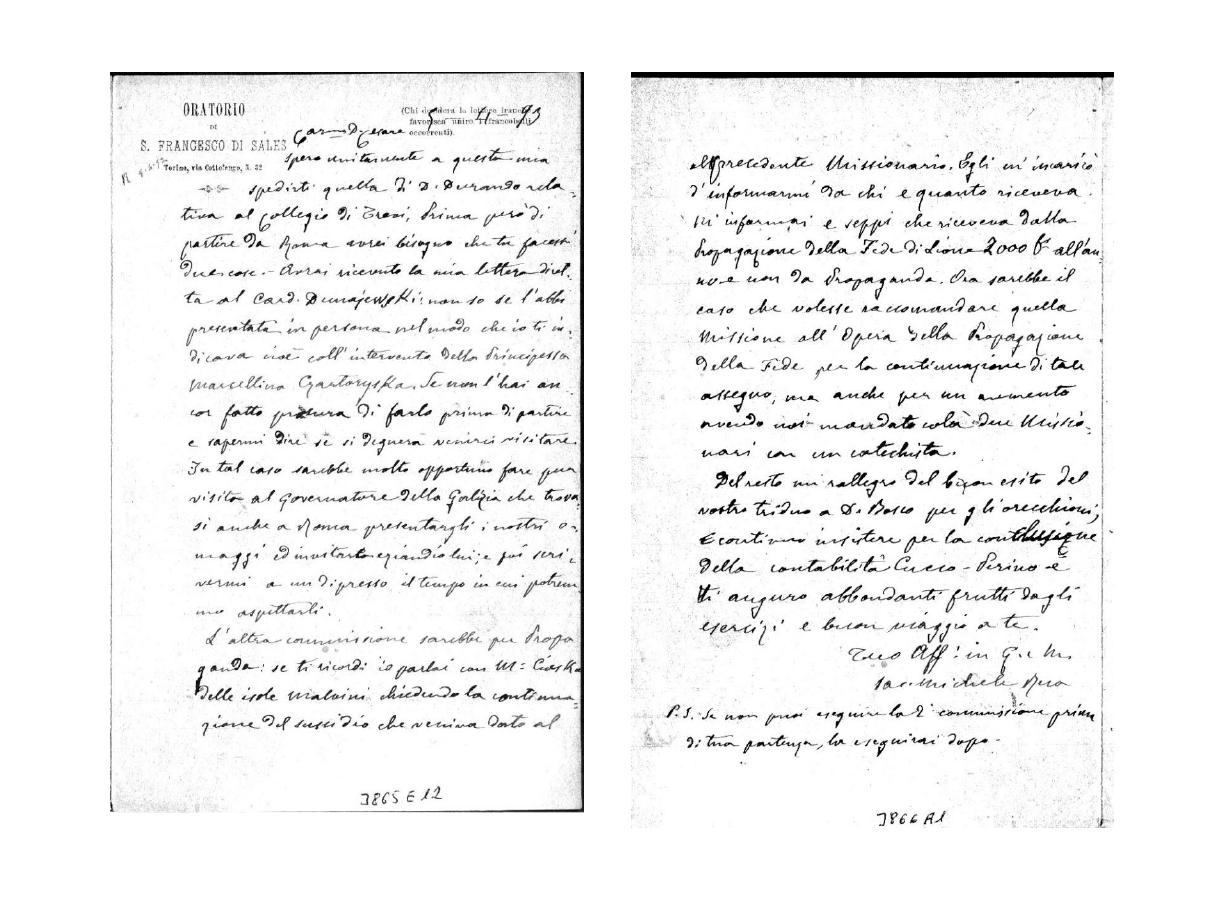 ORATORIO
DI
S. FRANCESCO DI SALES
Torino, via Cottolengo, N. 32
(Chi desidera la lettera franca
favorisca unire i francobolli
occorrenti).
5 4 93
Carmo D. Cesare
Spero unitamente a questa mia
spedirti quella di D. Durando rela-
tiva al Collegio di Trevi, Prima però di
partire da Roma avrei bisogno che tu facessi
due cose. - Avrai ricevuto la mia lettera diret-
ta al Card. Dunajewski: non so se l'abbi
presentata in persona nel modo che io ti in-
dicava cioè coll'intervento della Principessa
Marcellina Czartoryska. Se non l'hai an
cor fatto procura di farlo prima di partire
e sapermi dire se si degnerà venirci visitare.
In tal caso sarebbe molto opportuno fare pur
visita al Governatore della Galizia che trova-
si anche a Roma presentargli i nostri o-
maggi ed invitarlo eziandio lui; e poi scri-
vermi a un dipresso il tempo in cui potrem
mo aspettarli.
L'altra commissione sarebbe per Propa
ganda: se ti ricordi io parlai con Mr
delle isole Malvini chiedendo la continua-
zione del sussidio che veniva dato al
3865 E 12
precedente Missionario. Egli m'incaricò
d'informarmi da chi e quanto riceveva.
M'informai e seppi che riceveva dalla
Propagazione della Fede di Lione 2000 Fr all'an-
no e non da Propaganda. Ora sarebbe il
caso che volesse raccomandare quella
Missione all'Opera della Propagazione
della Fede per la continuazione di tale
assegno, ma anche per un aumento
avendo noi mandato colà due Missio-
nari con un catechista.
Del resto mi rallegro del buon esito del
vostro triduo a D. Bosco per gli orecchioni,
e continuo insistere per la conclusione
della contabilità Cucco - Perino - e
ti auguro abbondanti frutti dagli
esercizi e buon viaggio a te.
Tuo Aff. in G. e M.
Sac. Michele Rua
P.S. Se non puoi eseguire la 2a commissione prima
di tua partenza, la eseguirai dopo -
3866 A1